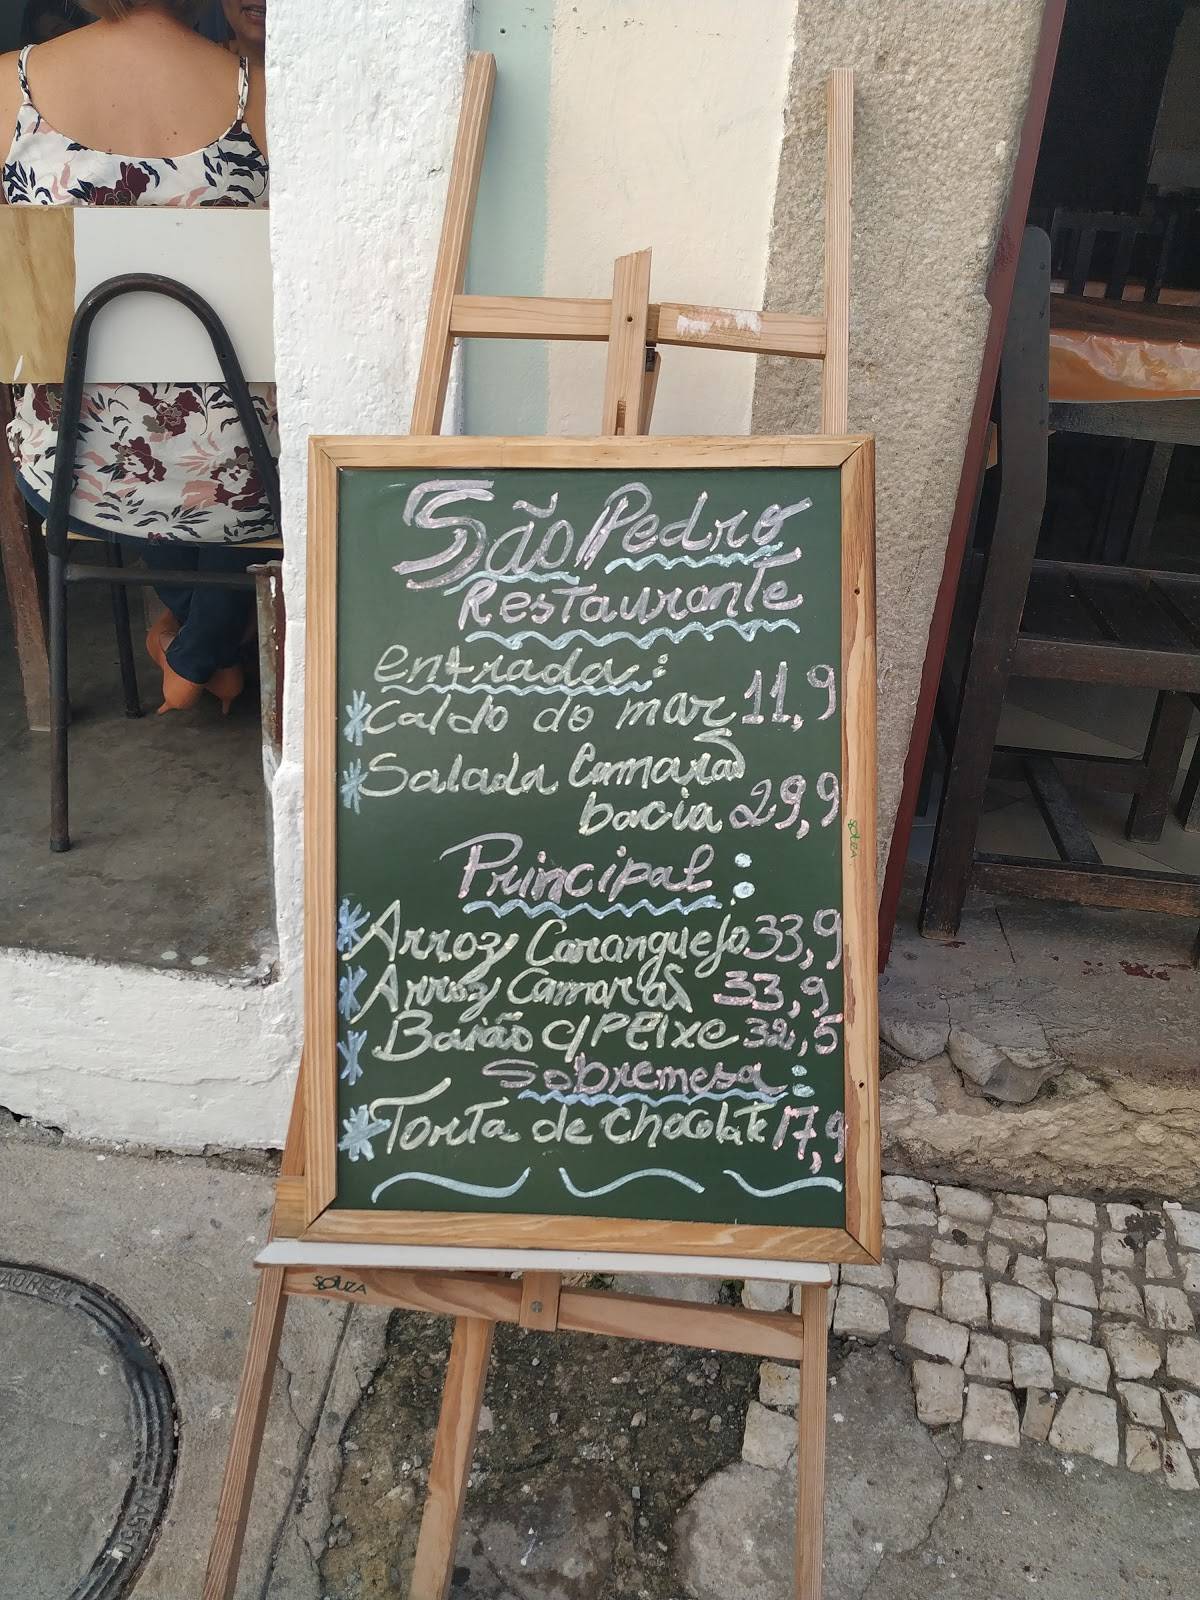 São Pedro
Restaurante
entrada:
* Caldo do mar 11,9
* Salada Camarão
bacia 29,9
Principal:
* Arroz Caranguejo 33,9
* Arroz Camarão 33,9
* Baião c/ PEIXE 32,5
Sobremesa:
* Torta de chocolate 17,9
souza
souza